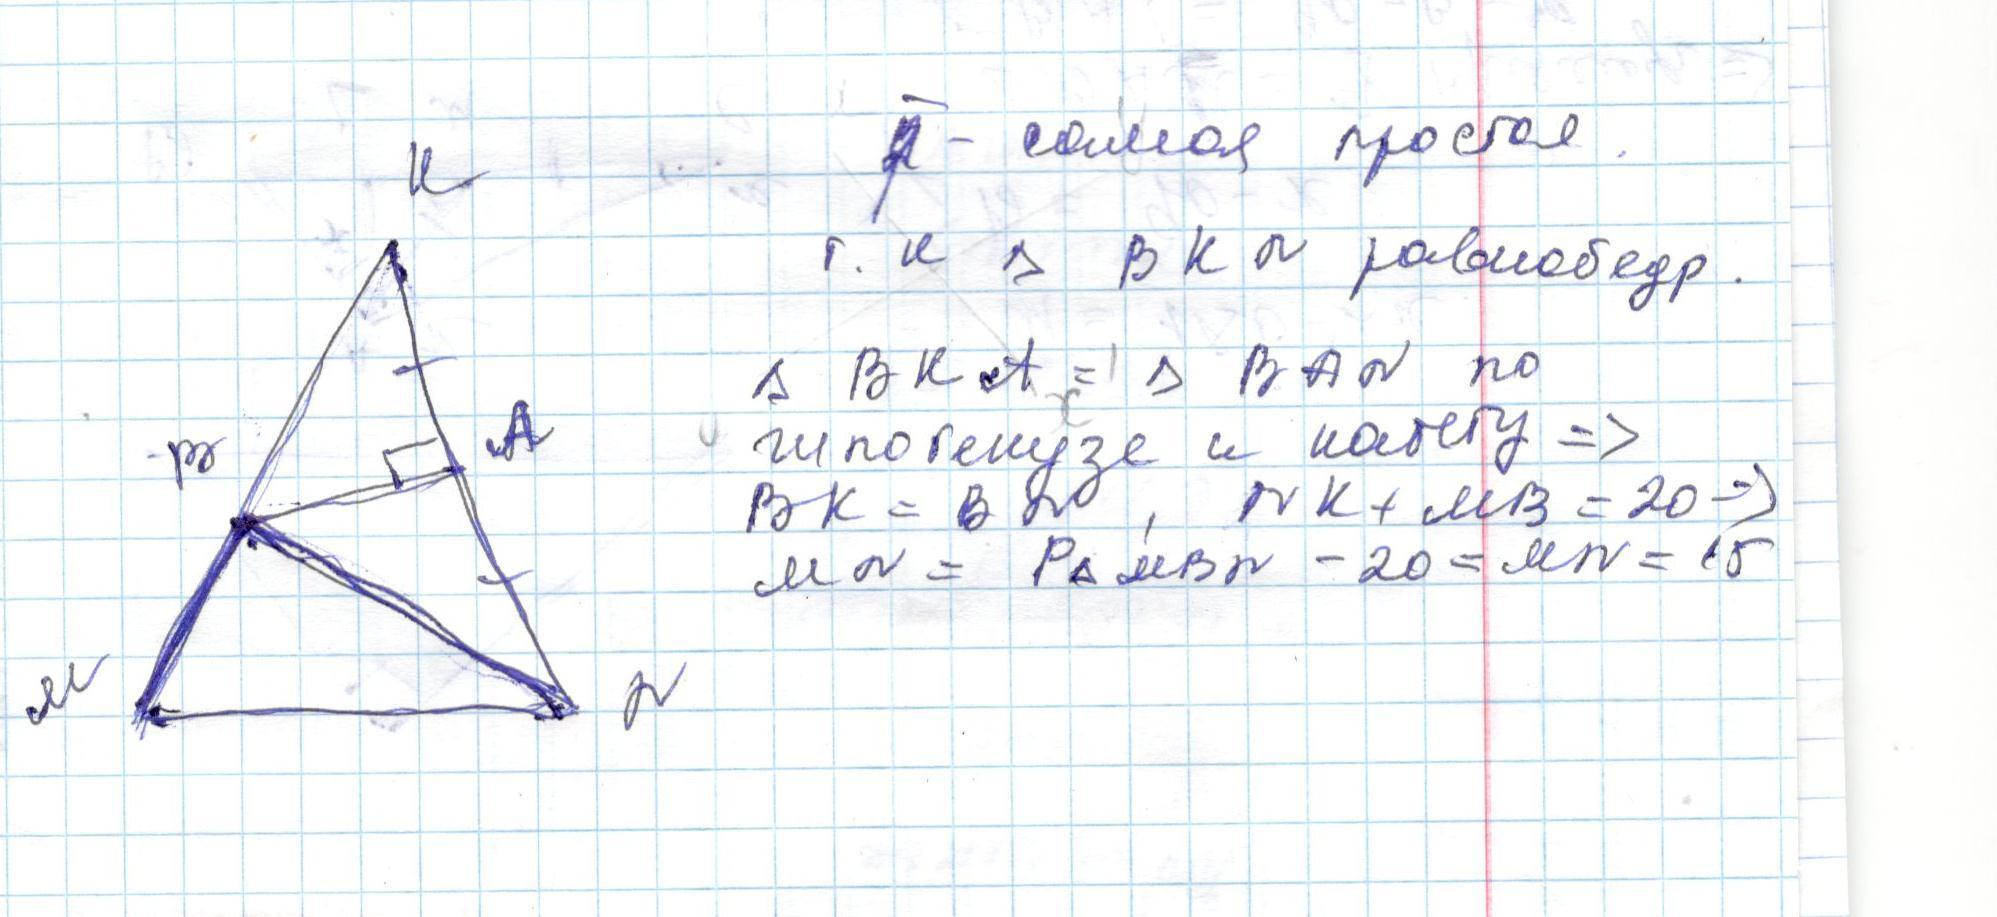 К
1 - самая простая.
т. к △ BKN равнобедр.
△ BKA = △ BAN по
гипотенузе и катету =>
BK = BN, NK + MB = 20 =>
MN = P△ MBN - 20 = MN = 15
B
A
M
N